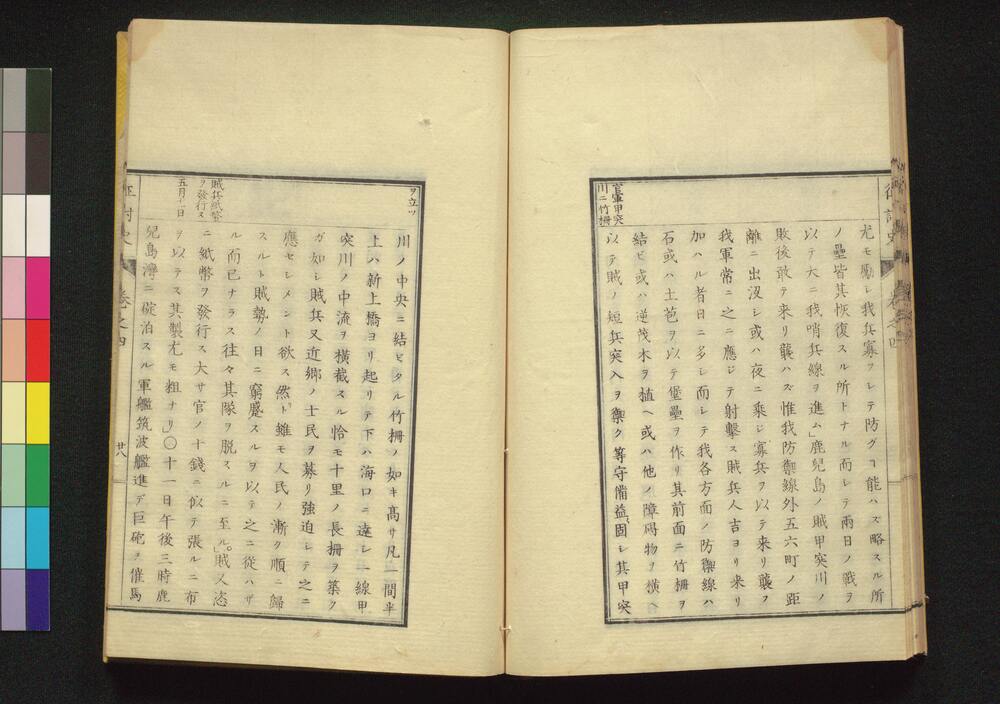 尤モ勵レ我兵寡フレテ防グヿ能ハズ略スル所
ノ壘皆其恢復スル所トナル而レテ兩日ノ戰ヲ
以テ大ニ我哨兵線ヲ進ム」鹿兒島ノ賊甲突川ノ
敗後敢テ来リ襲ハズ惟我防禦線外五六町ノ距
離ニ出沒レ或ハ夜ニ乘ジ寡兵ヲ以テ来リ襲フ
我軍常ニ之ニ應ジテ射擊ス賊兵人吉ヨリ来リ
加ハル者日ニ多レ而レテ我各方面ノ防禦線ハ
石或ハ土芭ヲ以テ堡壘ヲ作リ其前面ニ竹柵ヲ
結ビ或ハ逆茂木ヲ植ヘ或ハ他ノ障碍物ヲ横ヘ
以テ賊ノ短兵突入ヲ禦ク等守備益固レ其甲突
官軍甲突
川ニ竹柵
ヲ立ツ
川ノ中央ニ結ビタル竹柵ノ如キ高サ凡一間半
上ハ新上橋ヨリ起リテ下ハ海口ニ達レ一線甲
突川ノ中流ヲ横截スル恰モ十里ノ長柵ヲ築ク
ガ如レ賊兵又近郷ノ士民ヲ募リ強迫レテ之ニ
應セレメント欲ス然ト雖モ人民ノ漸ク順ニ歸
スルト賊勢ノ日ニ窮蹙スルヲ以テ之ニ從ハザ
ル而已ナラス往々其隊ヲ脱スルニ至ル」賊又恣
賊兵紙幣
ヲ發行ス
ニ紙幣ヲ發行ス大サ官ノ十錢ニ似テ張ルニ布
五月十一日
ヲ以テス其製尤モ粗ナリ」〇十一日午後三時鹿
兒島灣ニ碇泊スル軍艦筑波艦進デ巨砲ヲ催馬
征討史
卷之四
廿八